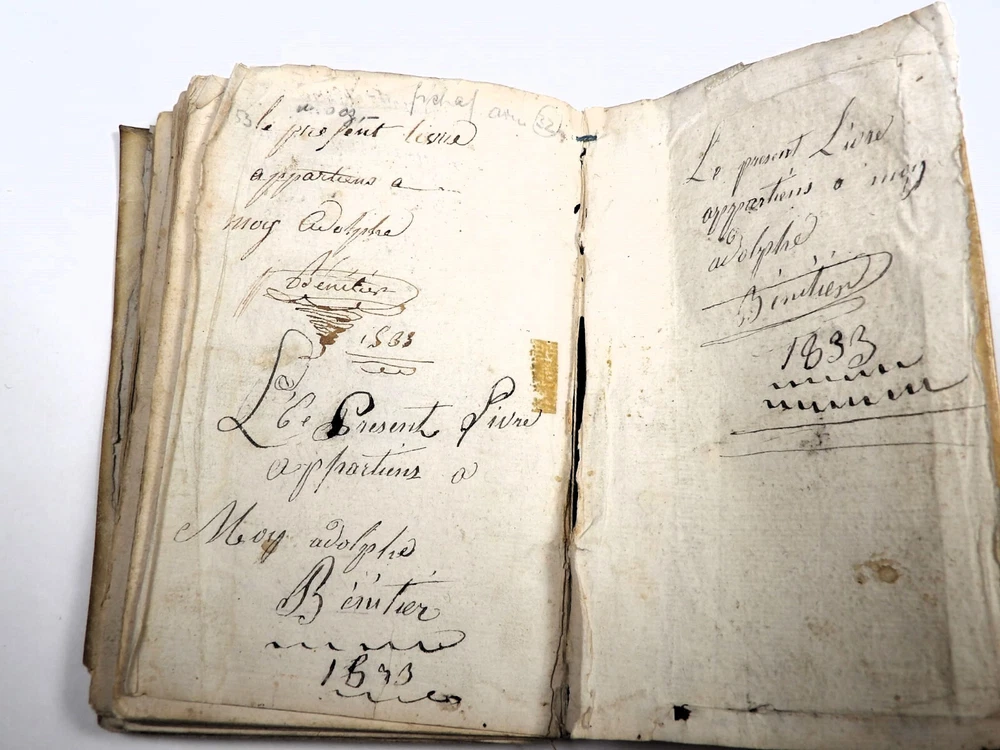 le present livre
appartiens a
moy Adolphe
Bénitier
1833
Le Present Livre
appartiens a
Moy adolphe
Bénitier
1833
Le present Livre
appartiens a moy
adolphe
Bénitier
1833